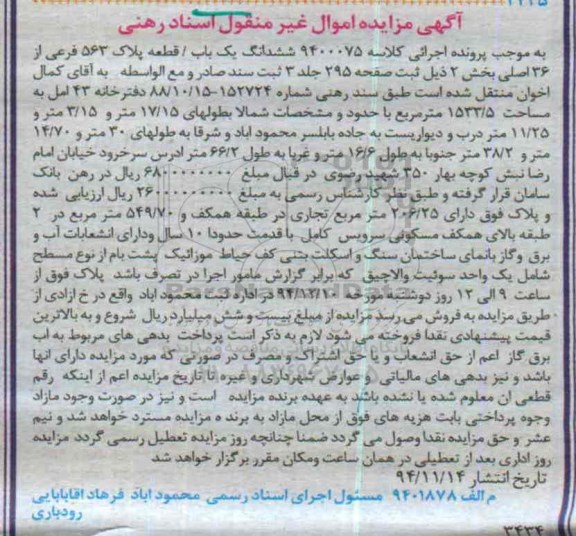 ۲۲۲۵
آگهی مزایده اموال غیر منقول اسناد رهنی
به موجب پرونده اجرائی کلاسه ۹۴۰۰۰۷۵ ششدانگ یک باب / قطعه پلاک ۵۶۳ فرعی از
۳۶ اصلی بخش ۲ ذیل ثبت صفحه ۲۹۵ جلد ۳ ثبت سند صادر و مع الواسطه به آقای کمال
اخوان منتقل شده است طبق سند رهنی شماره ۱۵۲۷۲۴-۸۸/۱۰/۱۵ دفترخانه ۴۳ امل به
مساحت ۱۵۳۳/۵ مترمربع با حدود و مشخصات شمالا بطولهای ۱۷/۱۵ متر و ۳/۱۵ متر و
۱۱/۲۵ متر درب و دیواریست به جاده بابلسر محمود اباد و شرقا به طولهای ۳۰ متر و ۱۴/۷۰
متر و ۳۸/۲ متر جنوبا به طول ۱۶/۶ متر و غربا به طول ۶۶/۲ متر ادرس سرخرود خیابان امام
رضا نبش کوچه بهار ۳۵۰ شهید رضوی در قبال مبلغ ۶۸۰۰۰۰۰۰۰۰ ریال در رهن بانک
سامان قرار گرفته و طبق نظر کارشناس رسمی به مبلغ ۲۶۰۰۰۰۰۰۰۰۰ ریال ارزیابی شده
و پلاک فوق دارای ۲۰۶/۲۵ متر مربع تجاری در طبقه همکف و ۵۴۹/۷۰ متر مربع در ۲
طبقه بالای همکف مسکونی سرویس کامل با قدمت حدودا ۱۰ سال ودارای انشعابات آب و
برق وگاز بانمای ساختمان سنگ و اسکلت بتنی کف حیاط موزائیک پشت بام از نوع مسطح
شامل یک واحد سوئیت والاچیق که برابر گزارش مامور اجرا در تصرف باشد پلاک فوق از
ساعت ۹ الی ۱۲ روز دوشنبه مورخه در اداره ثبت محمود اباد واقع در خ ازادی از
طریق مزایده به فروش می رسد مزایده از مبلغ بیست و شش میلیارد ریال شروع و به بالاترین
قیمت پیشنهادی نقدا فروخته می شود لازم به ذکر است پرداخت بدهی های مربوط به اب
برق گاز اعم از حق انشعاب و یا حق اشتراک و مصرف در صورتی که مورد مزایده دارای انها
باشد و نیز بدهی های مالیاتی و عوارض شهرداری و غیره تا تاریخ مزایده اعم از اینکه رقم
قطعی ان معلوم شده یا نشده باشد به عهده برنده مزایده است و نیز در صورت وجود مازاد
وجوه پرداختی بابت هزیه های فوق از محل مازاد به برنده مزایده مسترد خواهد شد و نیم
عشر و حق مزایده نقدا وصول می گردد ضمنا چنانچه روز مزایده تعطیل رسمی گردد مزایده
روز اداری بعد از تعطیلی در همان ساعت ومکان مقرر برگزار خواهد شد
تاریخ انتشار ۹۴/۱۱/۱۴
م الف ۹۴۰۱۸۷۸ مسئول اجرای اسناد رسمی محمود اباد فرهاد اقابابایی
رودباری
۳۴۳۴